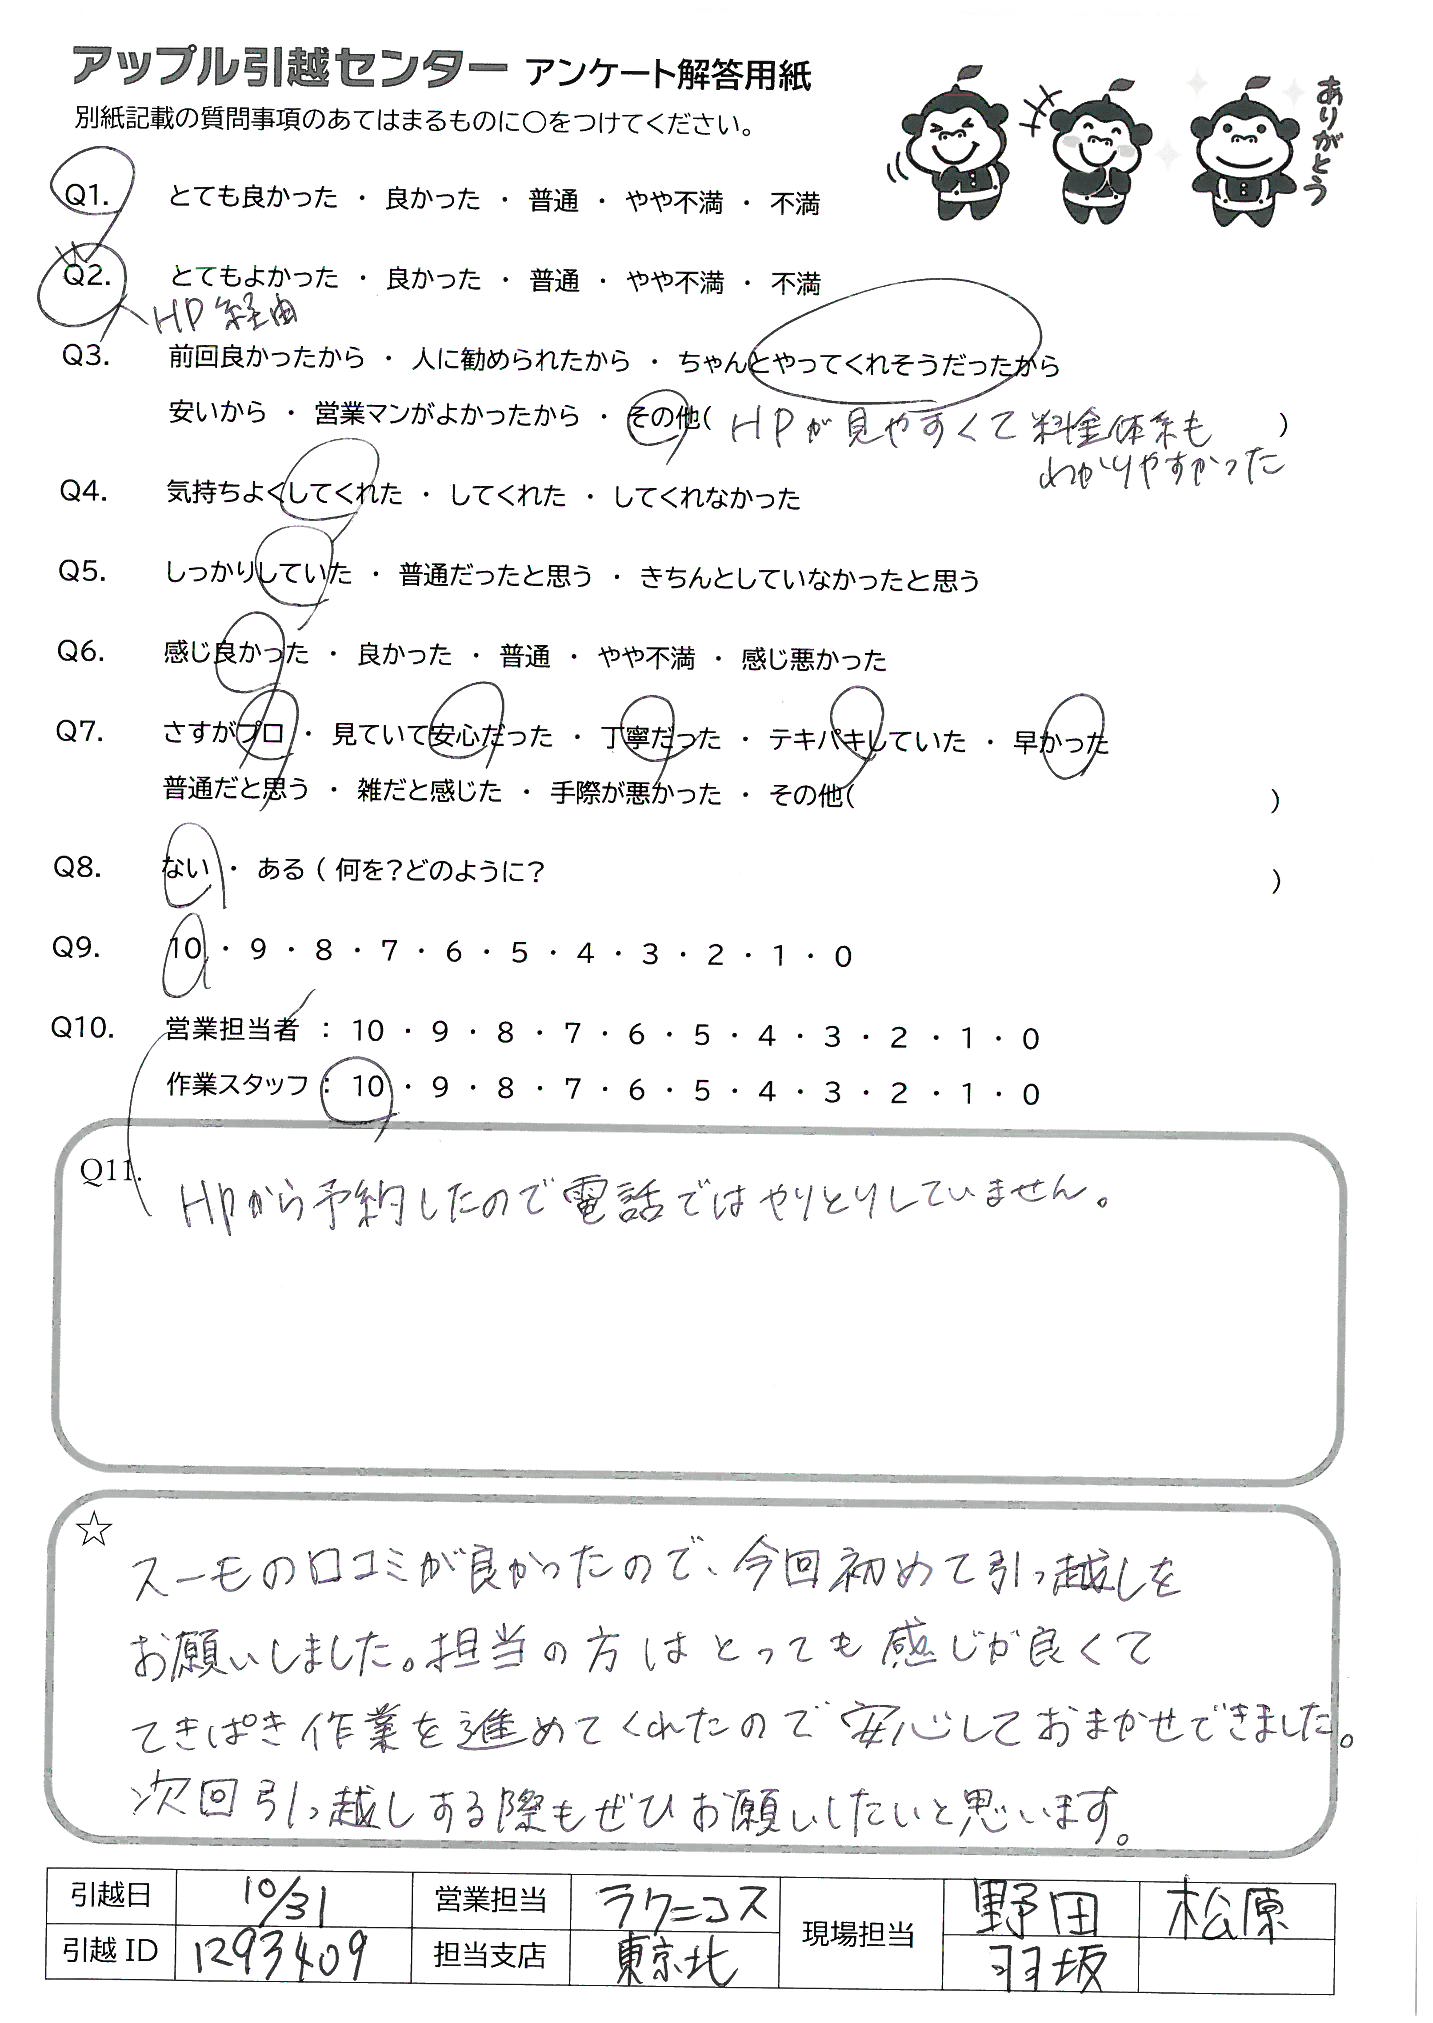 アップル引越センター アンケート解答用紙
別紙記載の質問事項のあてはまるものに〇をつけてください。
ありがとう
Q1. とても良かった ・ 良かった ・ 普通 ・ やや不満 ・ 不満
Q2. とてもよかった ・ 良かった ・ 普通 ・ やや不満 ・ 不満
HP経由
Q3. 前回良かったから ・ 人に勧められたから ・ ちゃんとやってくれそうだったから
安いから ・ 営業マンがよかったから ・ その他( HPが見やすくて料金体系も )
わかりやすかった
Q4. 気持ちよくしてくれた ・ してくれた ・ してくれなかった
Q5. しっかりしていた ・ 普通だったと思う ・ きちんとしていなかったと思う
Q6. 感じ良かった ・ 良かった ・ 普通 ・ やや不満 ・ 感じ悪かった
Q7. さすがプロ ・ 見ていて安心だった ・ 丁寧だった ・ テキパキしていた ・ 早かった
普通だと思う ・ 雑だと感じた ・ 手際が悪かった ・ その他( )
Q8. ない ・ ある ( 何を?どのように? )
Q9. 10 ・ 9 ・ 8 ・ 7 ・ 6 ・ 5 ・ 4 ・ 3 ・ 2 ・ 1 ・ 0
Q10. 営業担当者 : 10 ・ 9 ・ 8 ・ 7 ・ 6 ・ 5 ・ 4 ・ 3 ・ 2 ・ 1 ・ 0
作業スタッフ : 10 ・ 9 ・ 8 ・ 7 ・ 6 ・ 5 ・ 4 ・ 3 ・ 2 ・ 1 ・ 0
Q11.
HPから予約したので電話ではやりとりしていません。
☆
スーモの口コミが良かったので、今回初めて引っ越しを
お願いしました。担当の方はとっても感じが良くて
てきぱき作業を進めてくれたので安心しておまかせできました。
次回引っ越しする際もぜひお願いしたいと思います。
引越日 10/31 営業担当 ラクニコス 現場担当 野田 松原
引越 ID 1293409 担当支店 東京北 羽坂